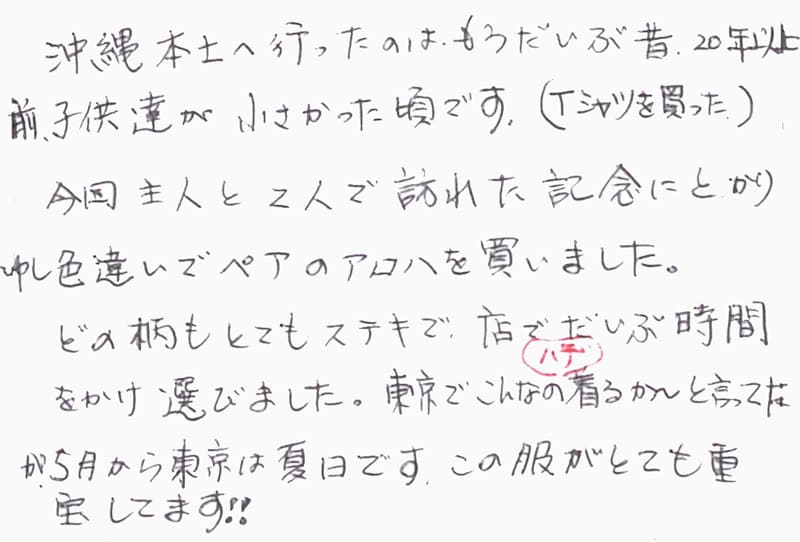 沖縄本土へ行ったのは、もうだいぶ昔、20年以上
前、子供達が小さかった頃です。(Tシャツを買った)
今回主人と2人で訪れた記念にとかり
ゆし色違いでペアのアロハを買いました。
どの柄もとてもステキで、店でだいぶ時間
ハデ
をかけ選びました。東京でこんなの着るか〜と言ってた
が、5月から東京は夏日です。この服がとても重
宝してます!!